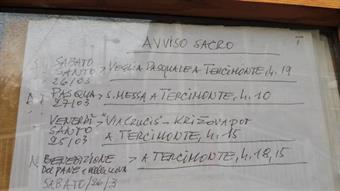 AVVISO SACRO
SABATO
SANTO > VEGLIA PASQUALE A TERCIMONTE, h. 19
26/03
PASQUA > S. MESSA A TERCIMONTE, h. 10
27/03
VENERDÌ > "VIA CRUCIS - KRIŽOVA POT
SANTO
25/03 A TERCIMONTE, h. 15
BENEDIZIONE > A TERCIMONTE, h. 18,15
DEL PANE
SABATO/26/3